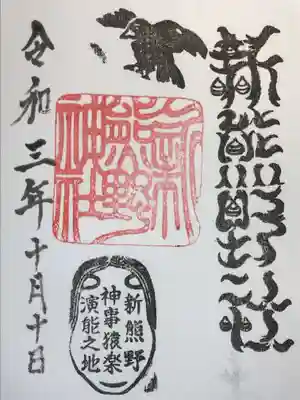 新熊野神社
新熊野
神事猿楽
演能之地
令和三年十月十日